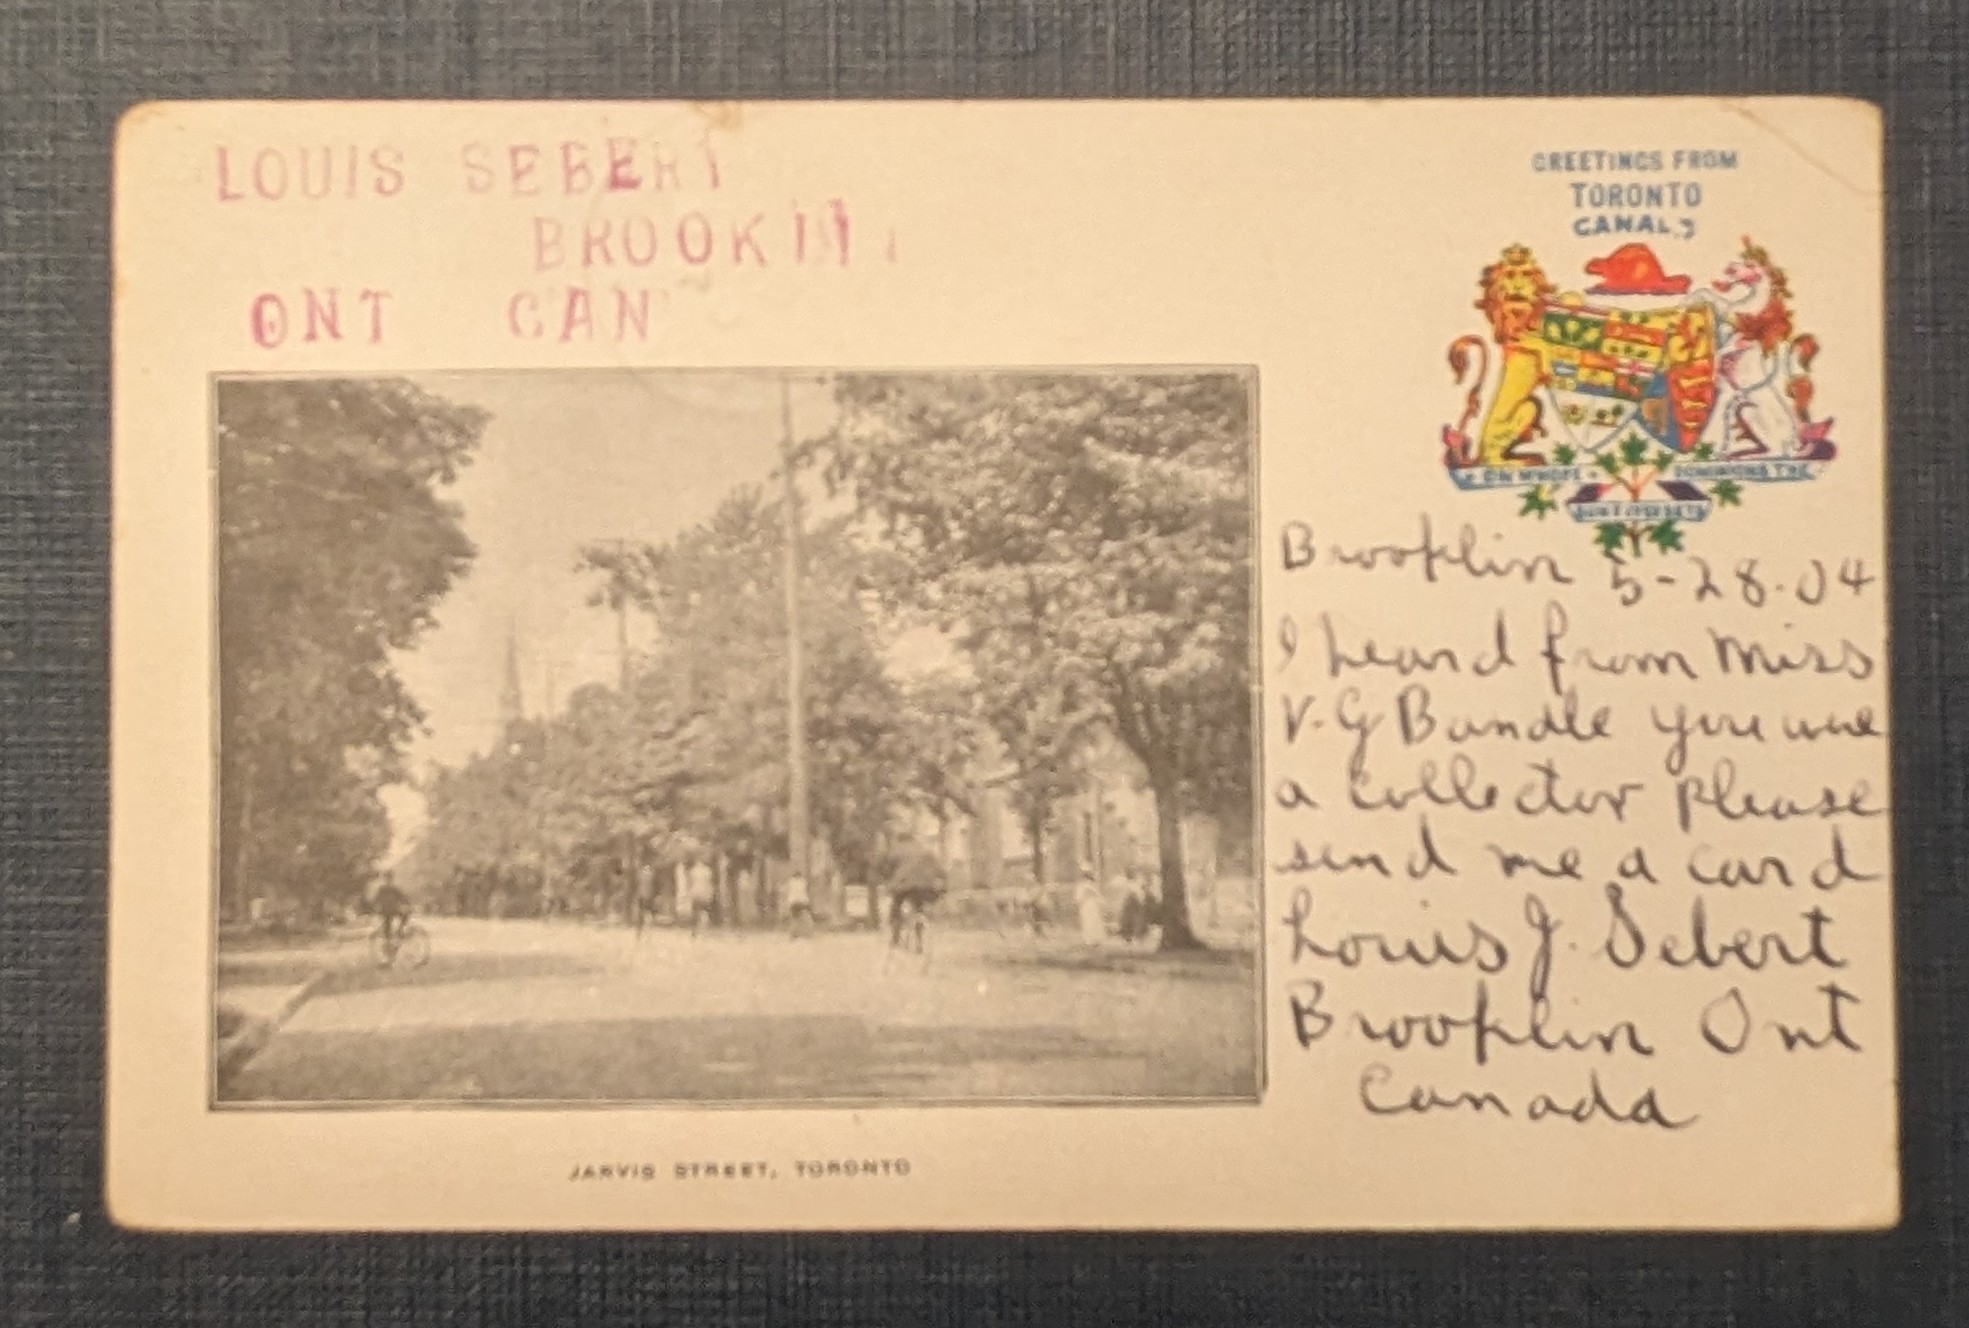 LOUIS SEBERT
BROOKLIN
ONT CAN
GREETINGS FROM
TORONTO
CANADA
Brooklin 5-28-04
I heard from Miss
V. G Bandle you were
a collector please
send me a card
Louis J. Sebert
Brooklin Ont
Canada
JARVIS STREET, TORONTO